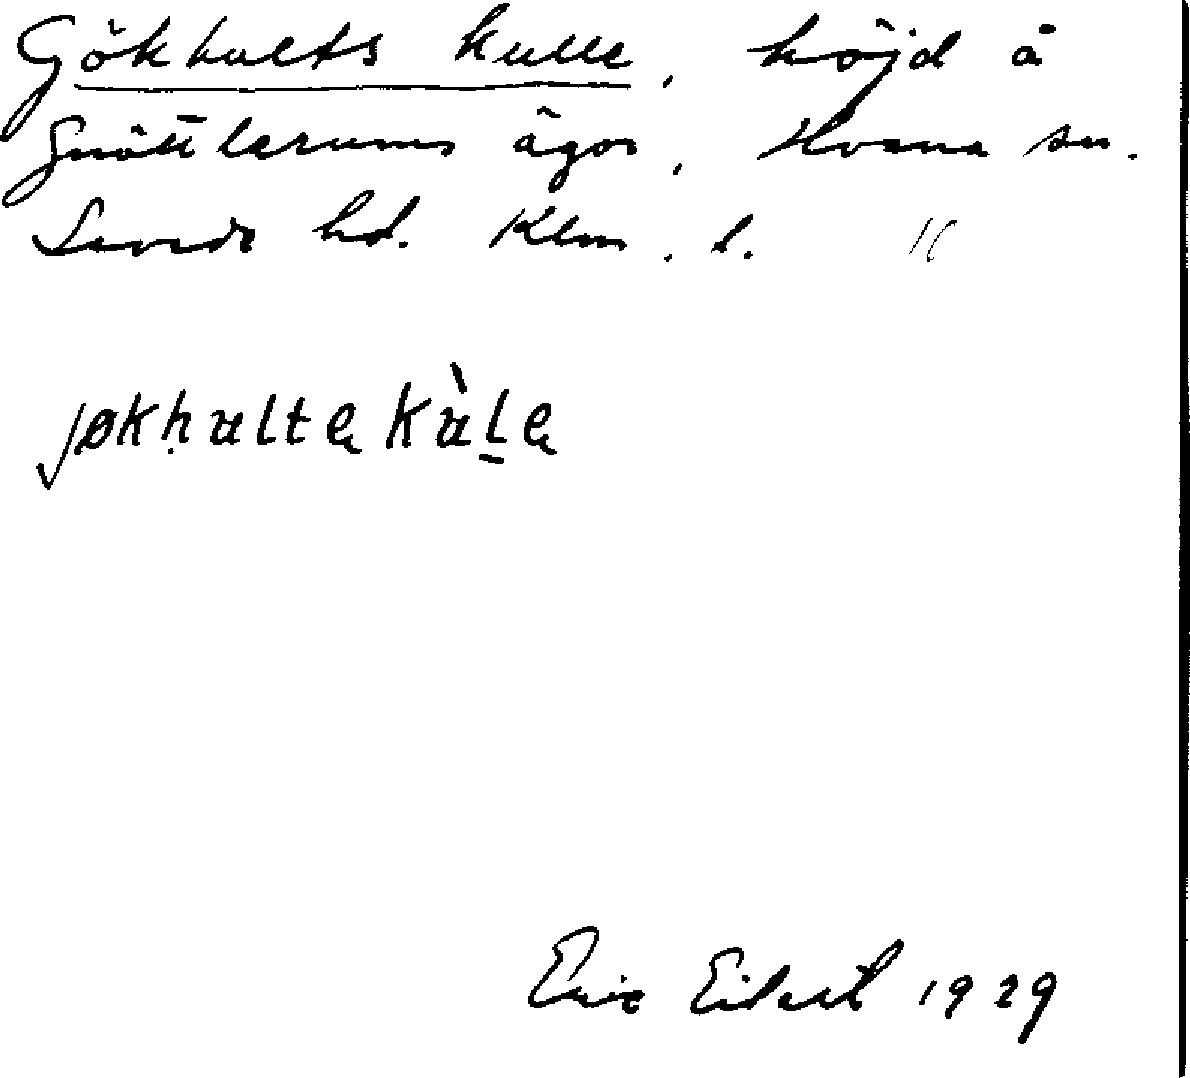 Gökhults kulle, höjd å
Gnöttlerums ägor, Hvena sn.
Sevede hd. Klm. l.
jøkhulta kùla
Eric Eilert 1929